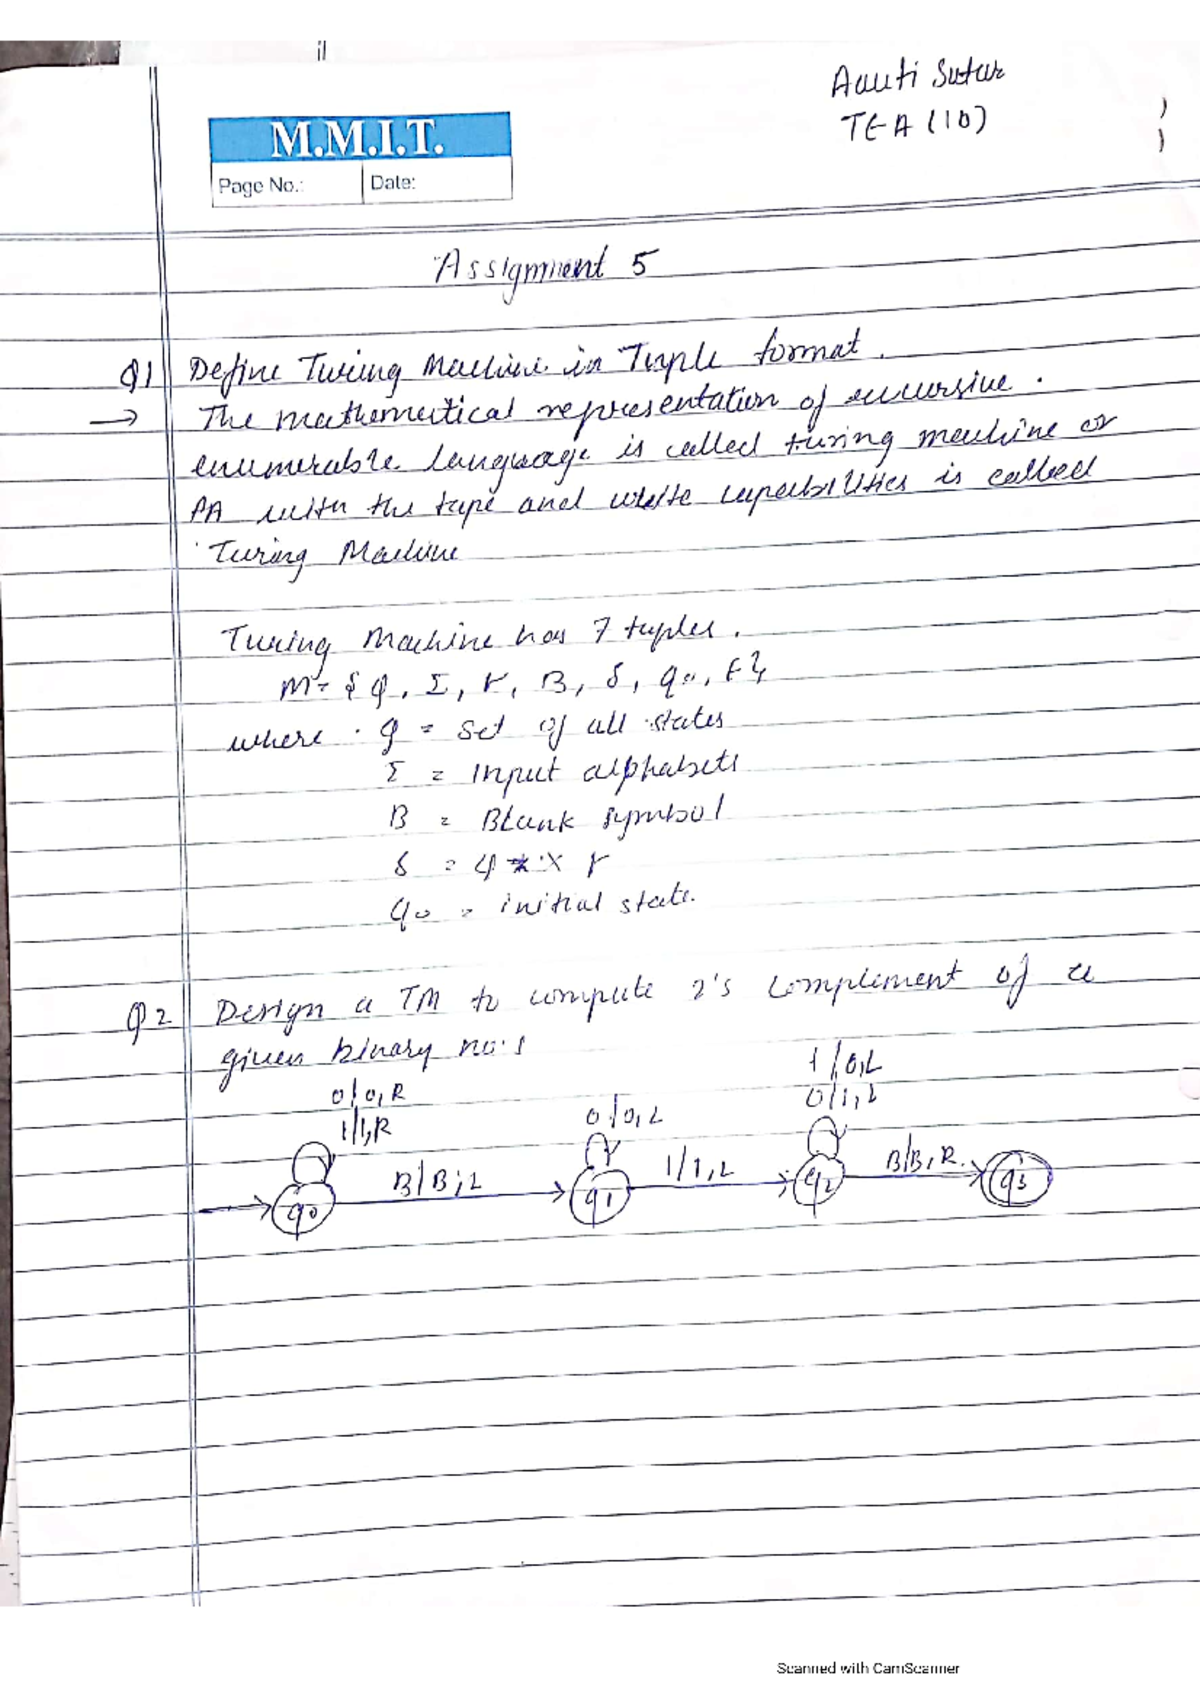 Aauti Sutar
TEA (10)
M.M.I.T.
Page No.: Date:
Assignment 5
Q1 Define Turing Machine in Tuple format.
→ The mathematical representation of recursive
enumerable language is called turing machine or
PA with the tape and write capabilities is called
Turing Machine
Turing Machine has 7 tuples.
M = { Q, Σ, Γ, B, δ, q0, F }
where Q = Set of all states
Σ = Input alphabets
B = Blank symbol
δ = Q × Γ
q0 = initial state.
Q2 Design a TM to compute 2's complement of a
given binary no's
1/0,L
0/0,R 0/0,L 0/1,L
1/1,R
B/B,L 1/1,L B/B,R
q0 q1 q2 q3
Scanned with CamScanner